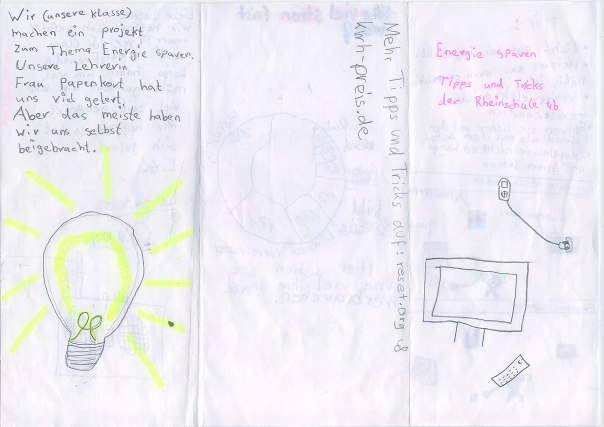 Wir (unsere klasse)
machen ein projekt
zum Thema Energie sparen.
Unsere Lehrerin
Frau Papenkort hat
uns viel gelert.
Aber das meiste haben
wir uns selbst
beigebracht.
Mehr Tipps und Tricks auf: reset.org &
kwh-preis.de
Energie sparen
Tipps und Tricks
der Rheinschule 4b